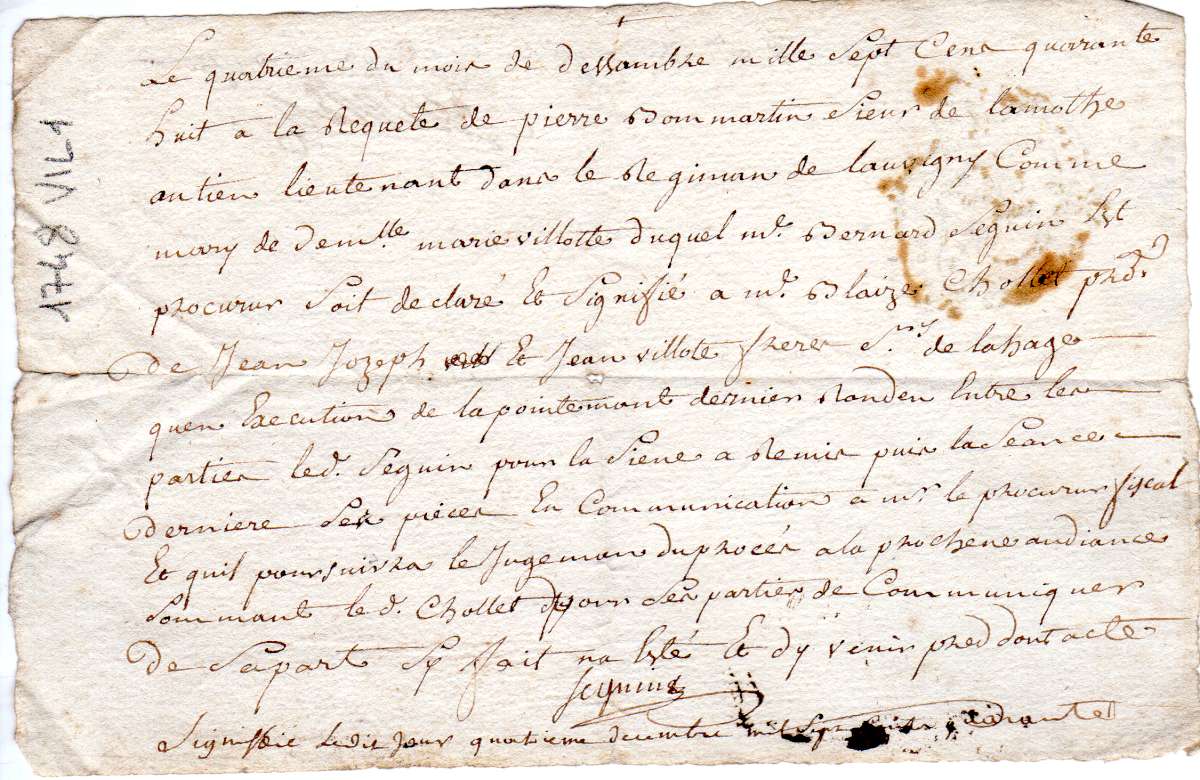 Le quatrieme du mois de dessambre mille sept cens quarante
huit a la Requete de pierre Dommartin sieur de lamothe
antien lieutenant dans le Regiman de lauvigny Comme
mary de dem.lle marie villotte duquel m.e Bernard Seguin Est
procurur soit declaré Et signifié a m.e Blaize Chollet pro.r
de Jean Jozeph Et Jean villote freres S.rs de lahage
quen Execution de lapointemant dernier Randeu Entre les
parties led. Seguin pour la siene a Remis puis la seance
derniere ses pièces En Communication a m.r le procurur fiscal
Et quil poursuivra le Jugeman du procés a la prochene audiance
sommant led. Chollet pour ses parties de Communiquer
de sapart sy fait na Esté Et dy venir pred dont acte
Seguin
Signiffié ledit jour quatrieme decembre mil sept cens quarante
1748 VIL1